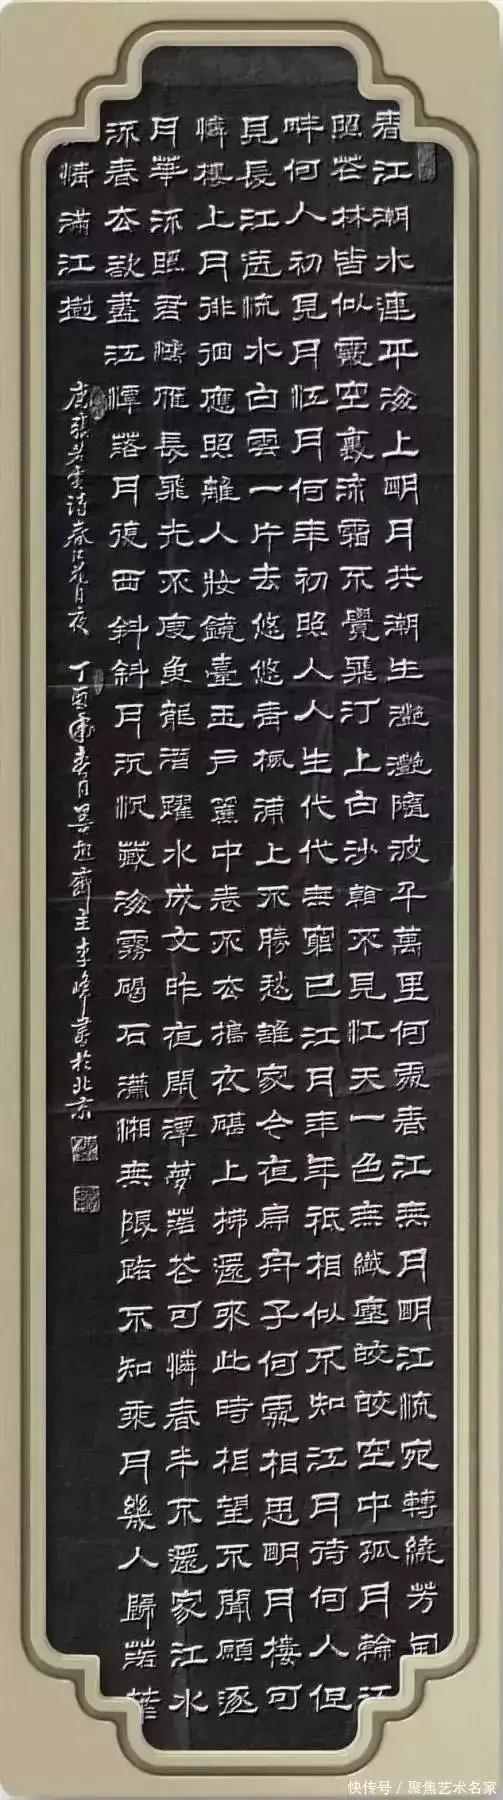 春江潮水連平海上明月共潮生灧灧隨波千萬里何處春江無月明江流宛轉繞芳甸
照花林皆似霰空裏流霜不覺飛汀上白沙看不見江天一色無纖塵皎皎空中孤月輪江
畔何人初見月江月何年初照人人生代代無窮已江月年年祗相似不知江月待何人但
見長江送流水白雲一片去悠悠青楓浦上不勝愁誰家今夜扁舟子何處相思明月樓可
憐樓上月徘徊應照離人妝鏡臺玉戶簾中卷不去搗衣砧上拂還來此時相望不聞願逐
月華流照君鴻雁長飛光不度魚龍潛躍水成文昨夜閒潭夢落花可憐春半不還家江水
流春去欲盡江潭落月復西斜斜月沉沉藏海霧碣石瀟湘無限路不知乘月幾人歸落葉
情滿江樹
唐張若虛詩春江花月夜 丁酉春月旭齋主李峰書於北京
快传号/聚焦艺术名家